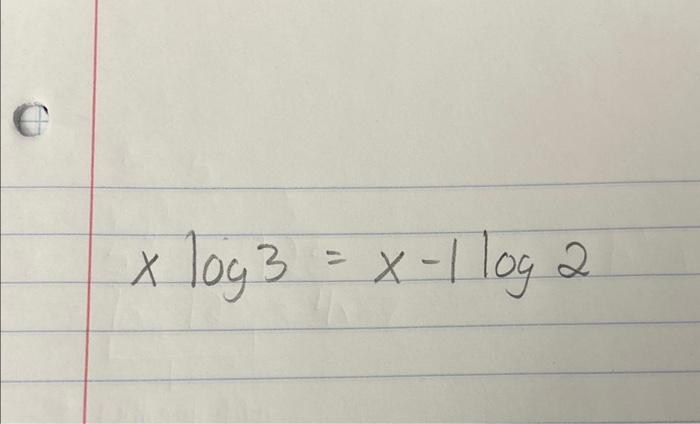 x log 3 = x - 1 log 2